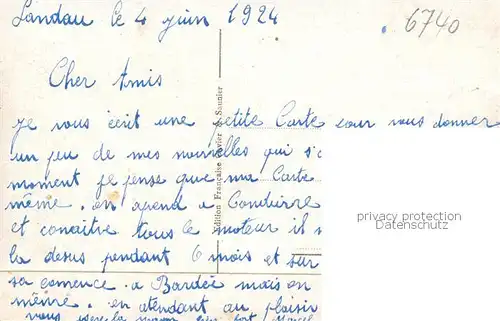 Landau le 4 juin 1924
6740
Cher Amis
je vous écrit une petite Carte pour vous donner
un peu de mes nouvelles qui s'
moment je pense que ma Carte
même. on apend a Conduirre
et conaitre tous le moteur il s
la desus pendant 6 mois et sur
sa comence a Bardée mais on
même. en atendant au plaisir
vous
Edition Française Xavier de Saunier
privacy protection
Dunkelmann